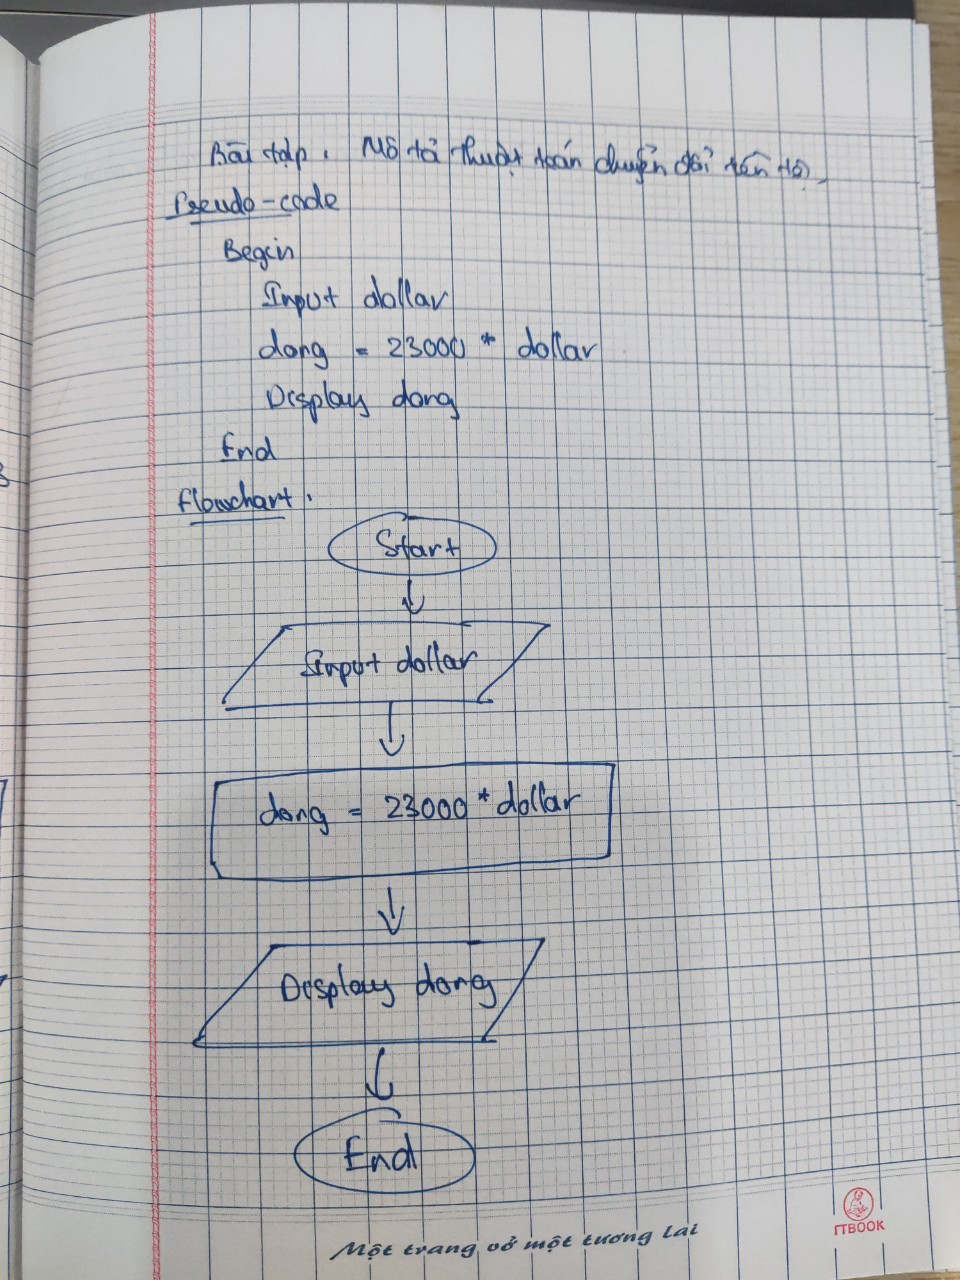 Bài tập. Mô tả thuật toán chuyển đổi tiền tệ.
Pseudo-code
Begin
Input dollar
dong = 23000 * dollar
Display dong
End
flowchart.
Start
Input dollar
dong = 23000 * dollar
Display dong
End
ITBOOK
Một trang vở một tương lai